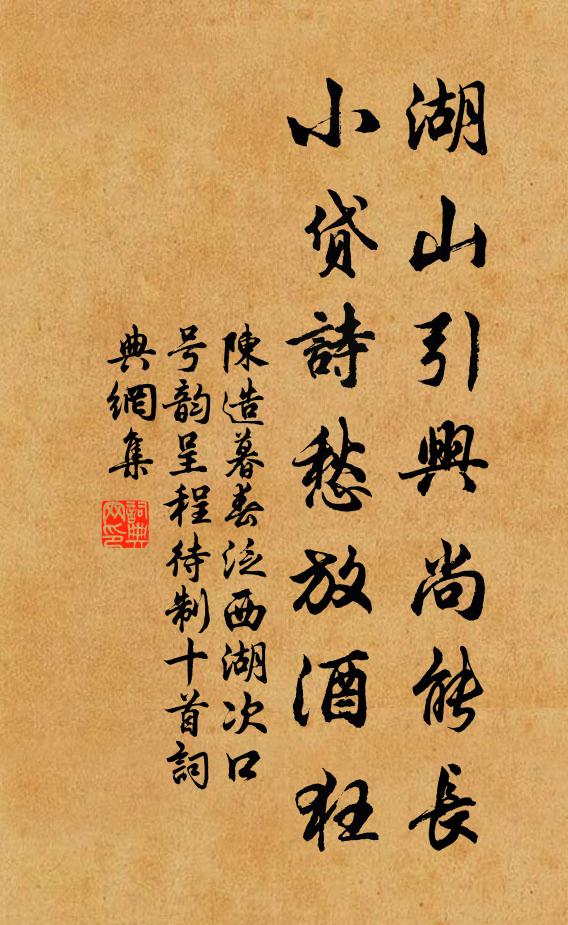 湖山引興尚能長
小貸詩愁放酒狂
陳造暮春泛西湖次口
号韵呈程待制十首詞
典網集
詞典网印